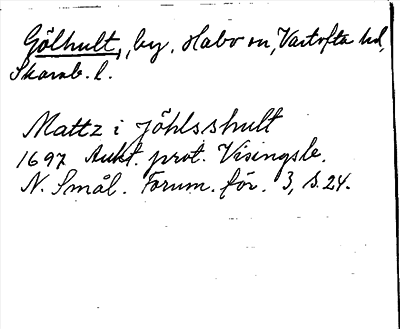 Gölhult, by, Habo sn, Vartofta hd,
Skarab. l.
Mattz i Jöhlsshult
1697 Aukt. prot. Visingsb.
N. Smål. Fornm. för. 3, s. 24.